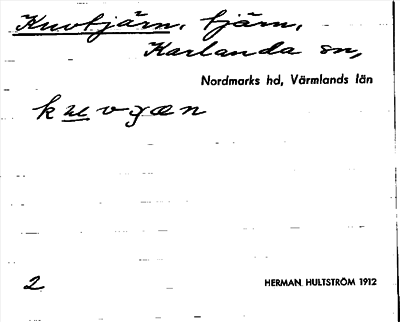 Knobtjärn, tjärn,
Karlanda sn,
Nordmarks hd, Värmlands län
2
HERMAN HULTSTRÖM 1912